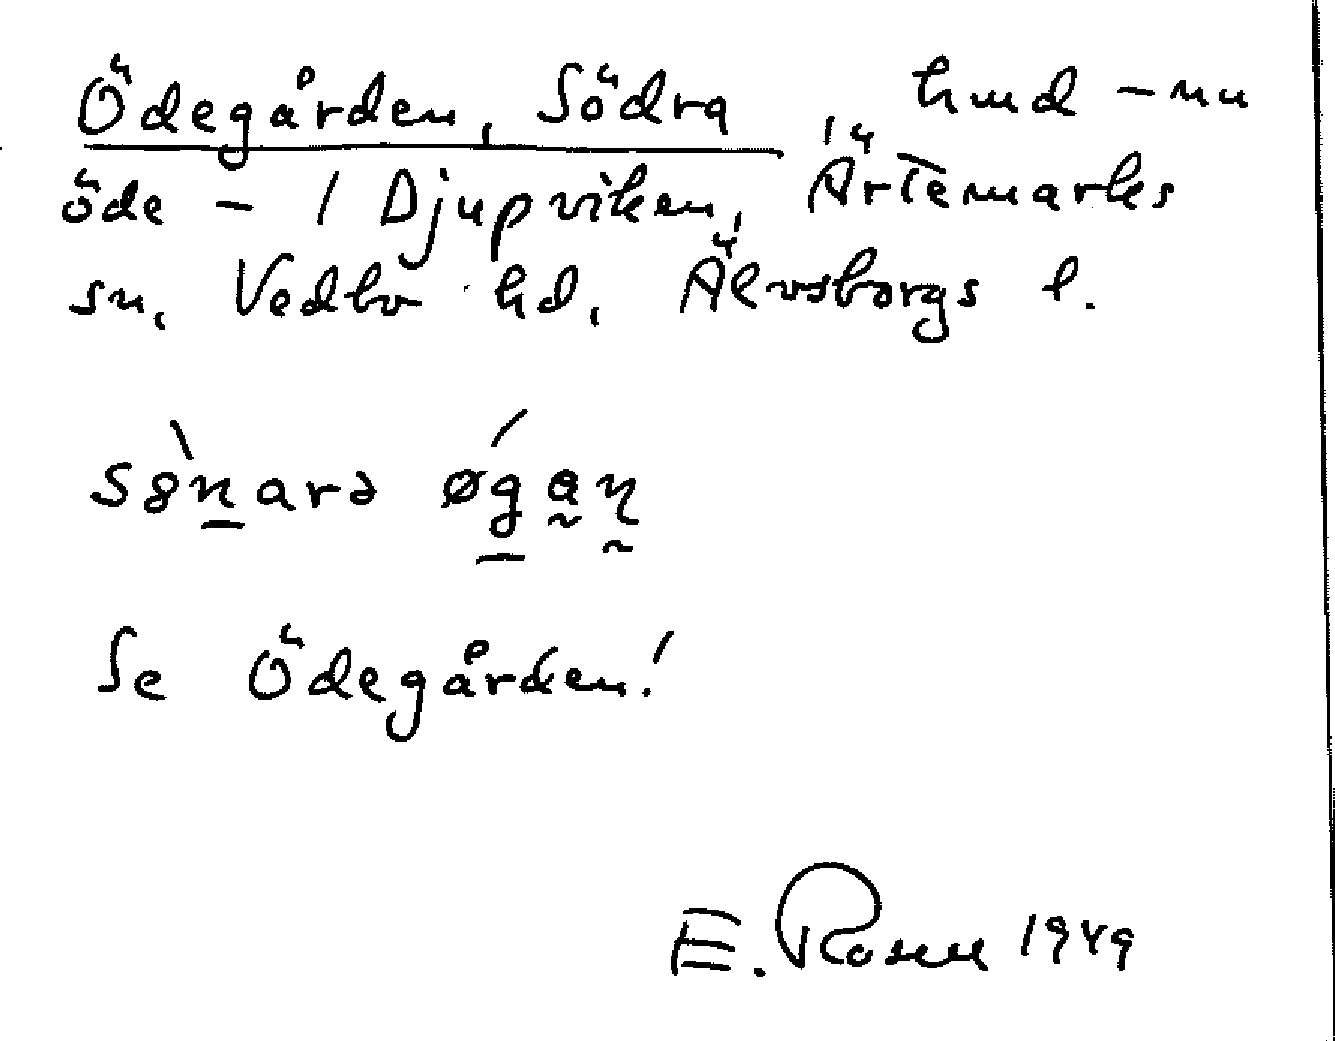 Ödegården, Södra, hmd – nu
öde – / Djupviken, Ärtemarks
sn, Vedbo hd, Älvsborgs l.
s8̀n̠arə øǵ̠a̰ṵn̰
Se Ödegården!
E. Rosell 1949